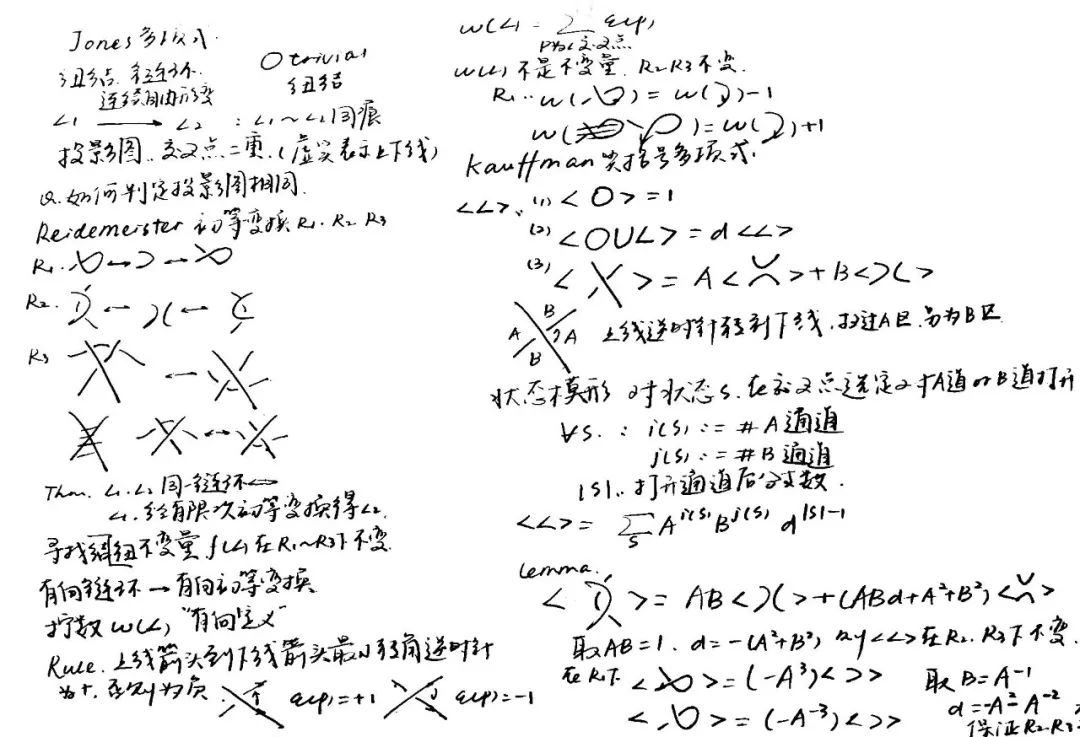 Jones多项式.
纽结. 链环.
O trivial
纽结
连续自由形变
L1 → L2 : L1~L2 同痕
投影图. 交叉点二重. (虚实表示上下线)
Q. 如何判定投影图相同.
Reidemeister 初等变换 R1. R2. R3
R1.
R2.
R3
Thm. L1. L2 同一链环
L1 经有限次初等变换得L2.
寻找纽不变量 f(L) 在R1~R3下不变.
有向链环→有向初等变换
拧数 w(L) "有向定义"
Rule. 上线箭头到下线箭头最小转角逆时针
为+. 否则为负 ε(p)=+1 ε(p)=-1
w(L) = Σ ε(p)
P为L交叉点
w(L) 不是不变量. R2 R3不变.
R1. w( ) = w( )-1
w( ) = w( )+1
Kauffman 尖括号多项式.
<L>. (1) <O>=1
(2) <O∪L> = d<L>
(3) < > = A< > + B< >
B
A A
B
上线逆时针转到下线. 扫过A区. 另为B区
状态模形 对状态s. 在交叉点选定对A道or B道打开
∀s. : i(s) := #A 通道
j(s) := #B 通道
|S|.. 打开通道后分支数.
<L> = Σ_S A^{i(s)} B^{j(s)} d^{|S|-1}
Lemma.
< > = AB< > + (ABd+A²+B²)< >
取AB=1. d=-(A²+B²), <L>在R2. R3下不变.
在R1下 < > = (-A³)< > 取B=A⁻¹
< > = (-A⁻³)< > d=-A²-A⁻²
保证R2 R3